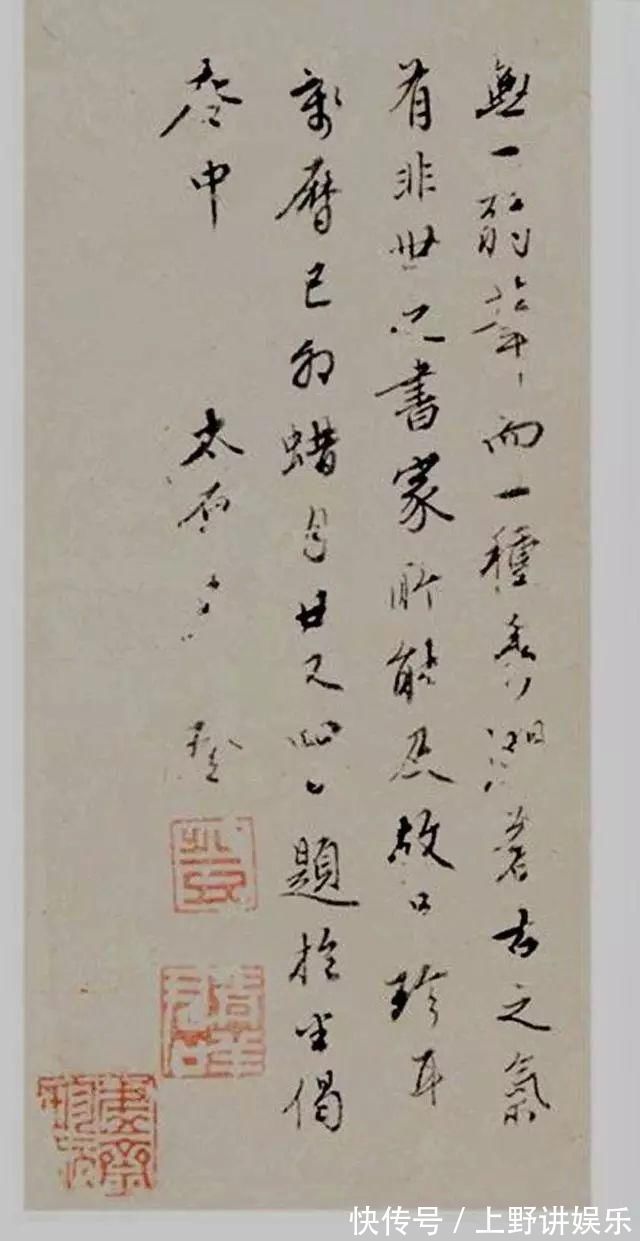 無一酌筆而一種香潤蒼古之氣
有非世之書家所能及故可珍耳
萬曆己卯蜡月廿又四日題於半偈
菴中 太原王穉登
快传号 / 上野讲娱乐